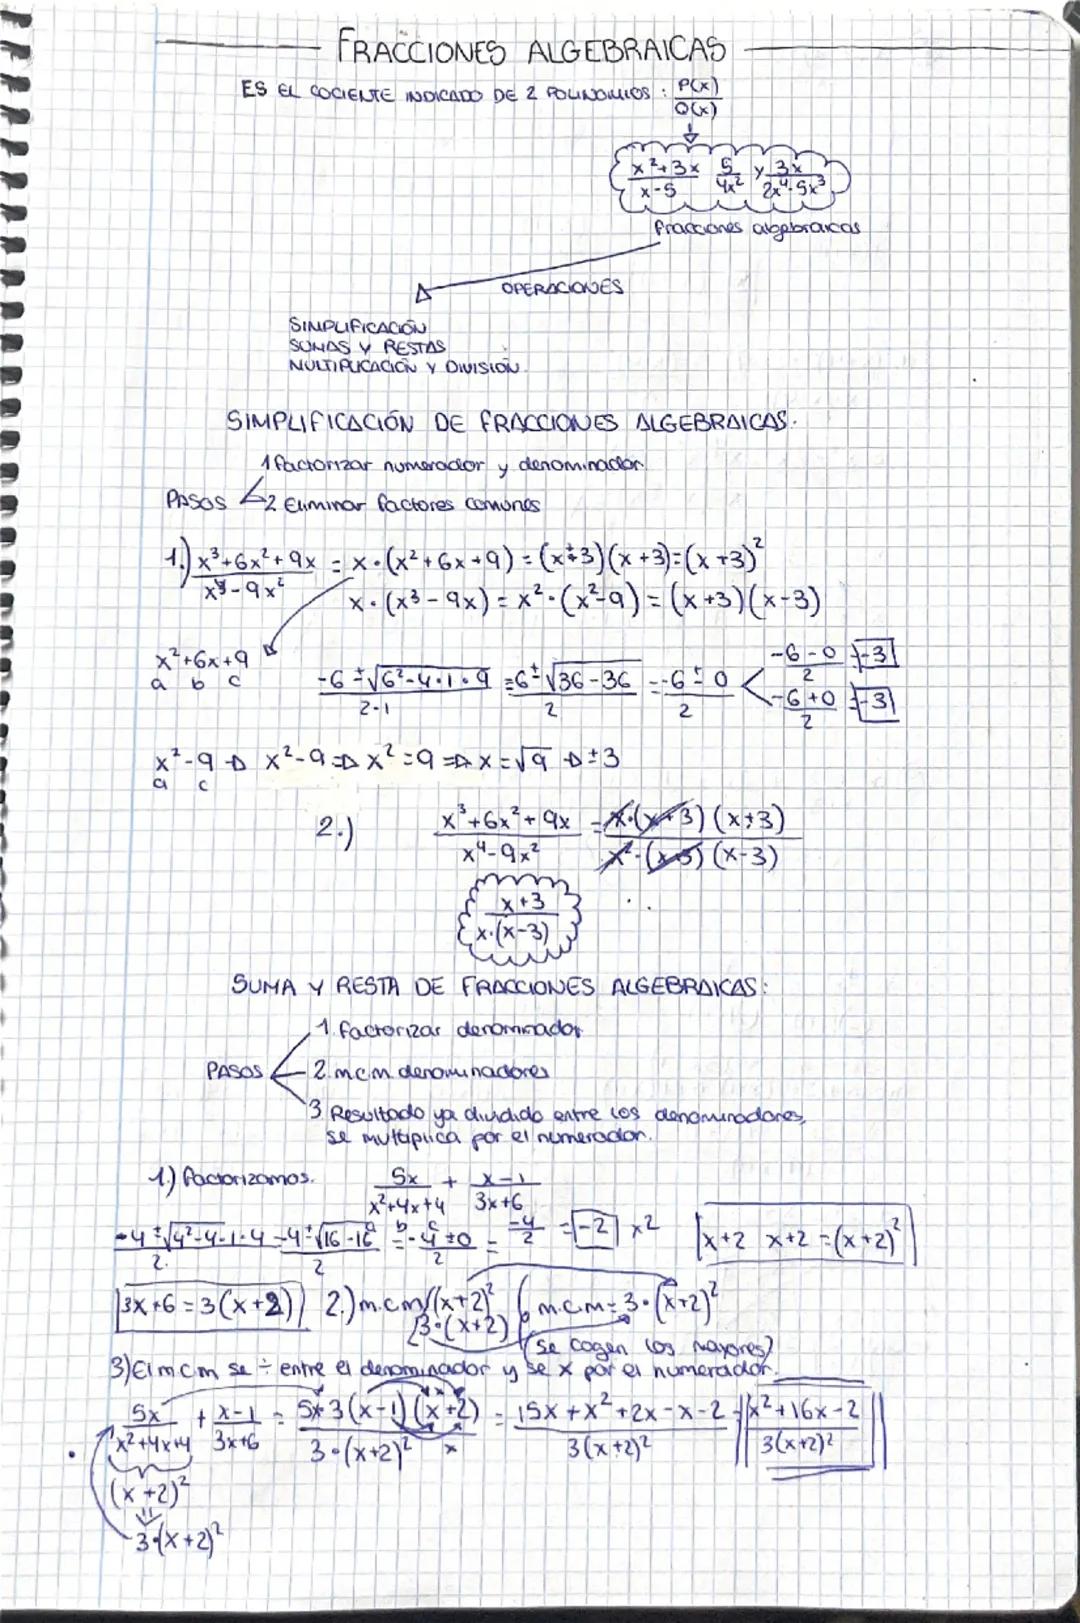 FRACCIONES ALGEBRAICAS
ES EL COCIENTE INDICADO DE 2 POLINOMIOS : P(x)/Q(x)
x²+3x/x-5 5/4x² y 3x/2x⁴-5x³
fracciones algebraicas
OPERACIONES
SIMPLIFICACIÓN
SUMAS Y RESTAS
MULTIPLICACIÓN Y DIVISIÓN.
SIMPLIFICACIÓN DE FRACCIONES ALGEBRAICAS.
1 factorizar numerador y denominador.
PASOS 2 Eliminar factores comunes
1.) x³+6x²+9x = x·(x²+6x+9) = (x+3)(x+3)=(x+3)²
x⁴-9x² x·(x³-9x) = x²·(x²-9) = (x+3)(x-3)
x²+6x+9
a b c
-6±√6²-4·1·9/2·1 = -6±√36-36/2 = -6±0/2 -6-0/2 = -3
-6+0/2 = -3
x²-9 → x²-9 ⇒ x²=9 ⇒ x=√9 → ±3
a c
2.) x³+6x²+9x/x⁴-9x² = x·(x+3)(x+3)/x²·(x+3)(x-3)
x+3/x·(x-3)
SUMA Y RESTA DE FRACCIONES ALGEBRAICAS:
1. factorizar denominador
PASOS 2. mcm. denominadores
3 Resultado ya dividido entre los denominadores,
se multiplica por el numerador.
1.) factorizamos. 5x/x²+4x+4 + x-1/3x+6
a b c
-4±√4²-4·1·4/2. -4±√16-16/2 = -4±0/2 = -4/2 = -2 x2 x+2 x+2 = (x+2)²
3x+6 = 3(x+2) 2.) m.c.m (x+2)² m.c.m = 3·(x+2)²
3·(x+2)
(se cogen los mayores)
3) El mcm se ÷ entre el denominador y se x por el numerador.
5x/x²+4x+4 + x-1/3x+6 = 5x·3(x-1)(x+2)/3·(x+2)² = 15x+x²+2x-x-2/3(x+2)² = x²+16x-2/3(x+2)²
(x+2)²
3·(x+2)²